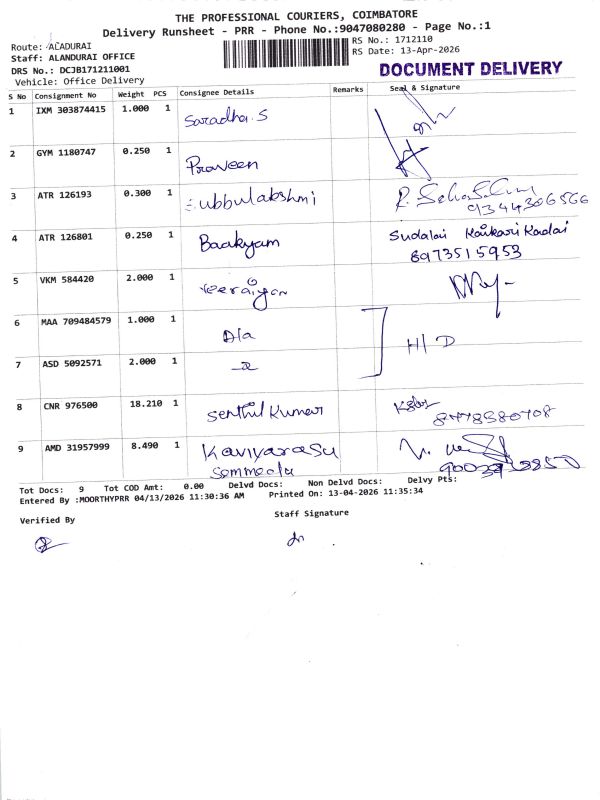 THE PROFESSIONAL COURIERS, COIMBATORE
Delivery Runsheet - PRR - Phone No.:9047080280 - Page No.:1
Route: ALADURAI
RS No.: 1712110
Staff: ALANDURAI OFFICE
RS Date: 13-Apr-2026
DRS No.: DCJB171211001
Vehicle: Office Delivery
DOCUMENT DELIVERY
S No Consignment No Weight PCS Consignee Details Remarks Seal & Signature
1 IXM 303874415 1.000 1 Saradha.S
2 GYM 1180747 0.250 1 Praveen
3 ATR 126193 0.300 1 Subbulakshmi
9344306566
4 ATR 126801 0.250 1 Baakyam Sudalai Kaikari Kadai
8973515953
5 VKM 584420 2.000 1 Veeraiyan
6 MAA 709484579 1.000 1 D/a
H/D
7 ASD 5092571 2.000 1
8 CNR 976500 18.210 1 Senthil Kumar
9 AMD 31957999 8.490 1 Kaviyarasu
Semmedu
Tot Docs: 9 Tot COD Amt: 0.00 Delvd Docs: Non Delvd Docs: Delvy Pts:
Entered By :MOORTHYPRR 04/13/2026 11:30:36 AM Printed On: 13-04-2026 11:35:34
Verified By Staff Signature